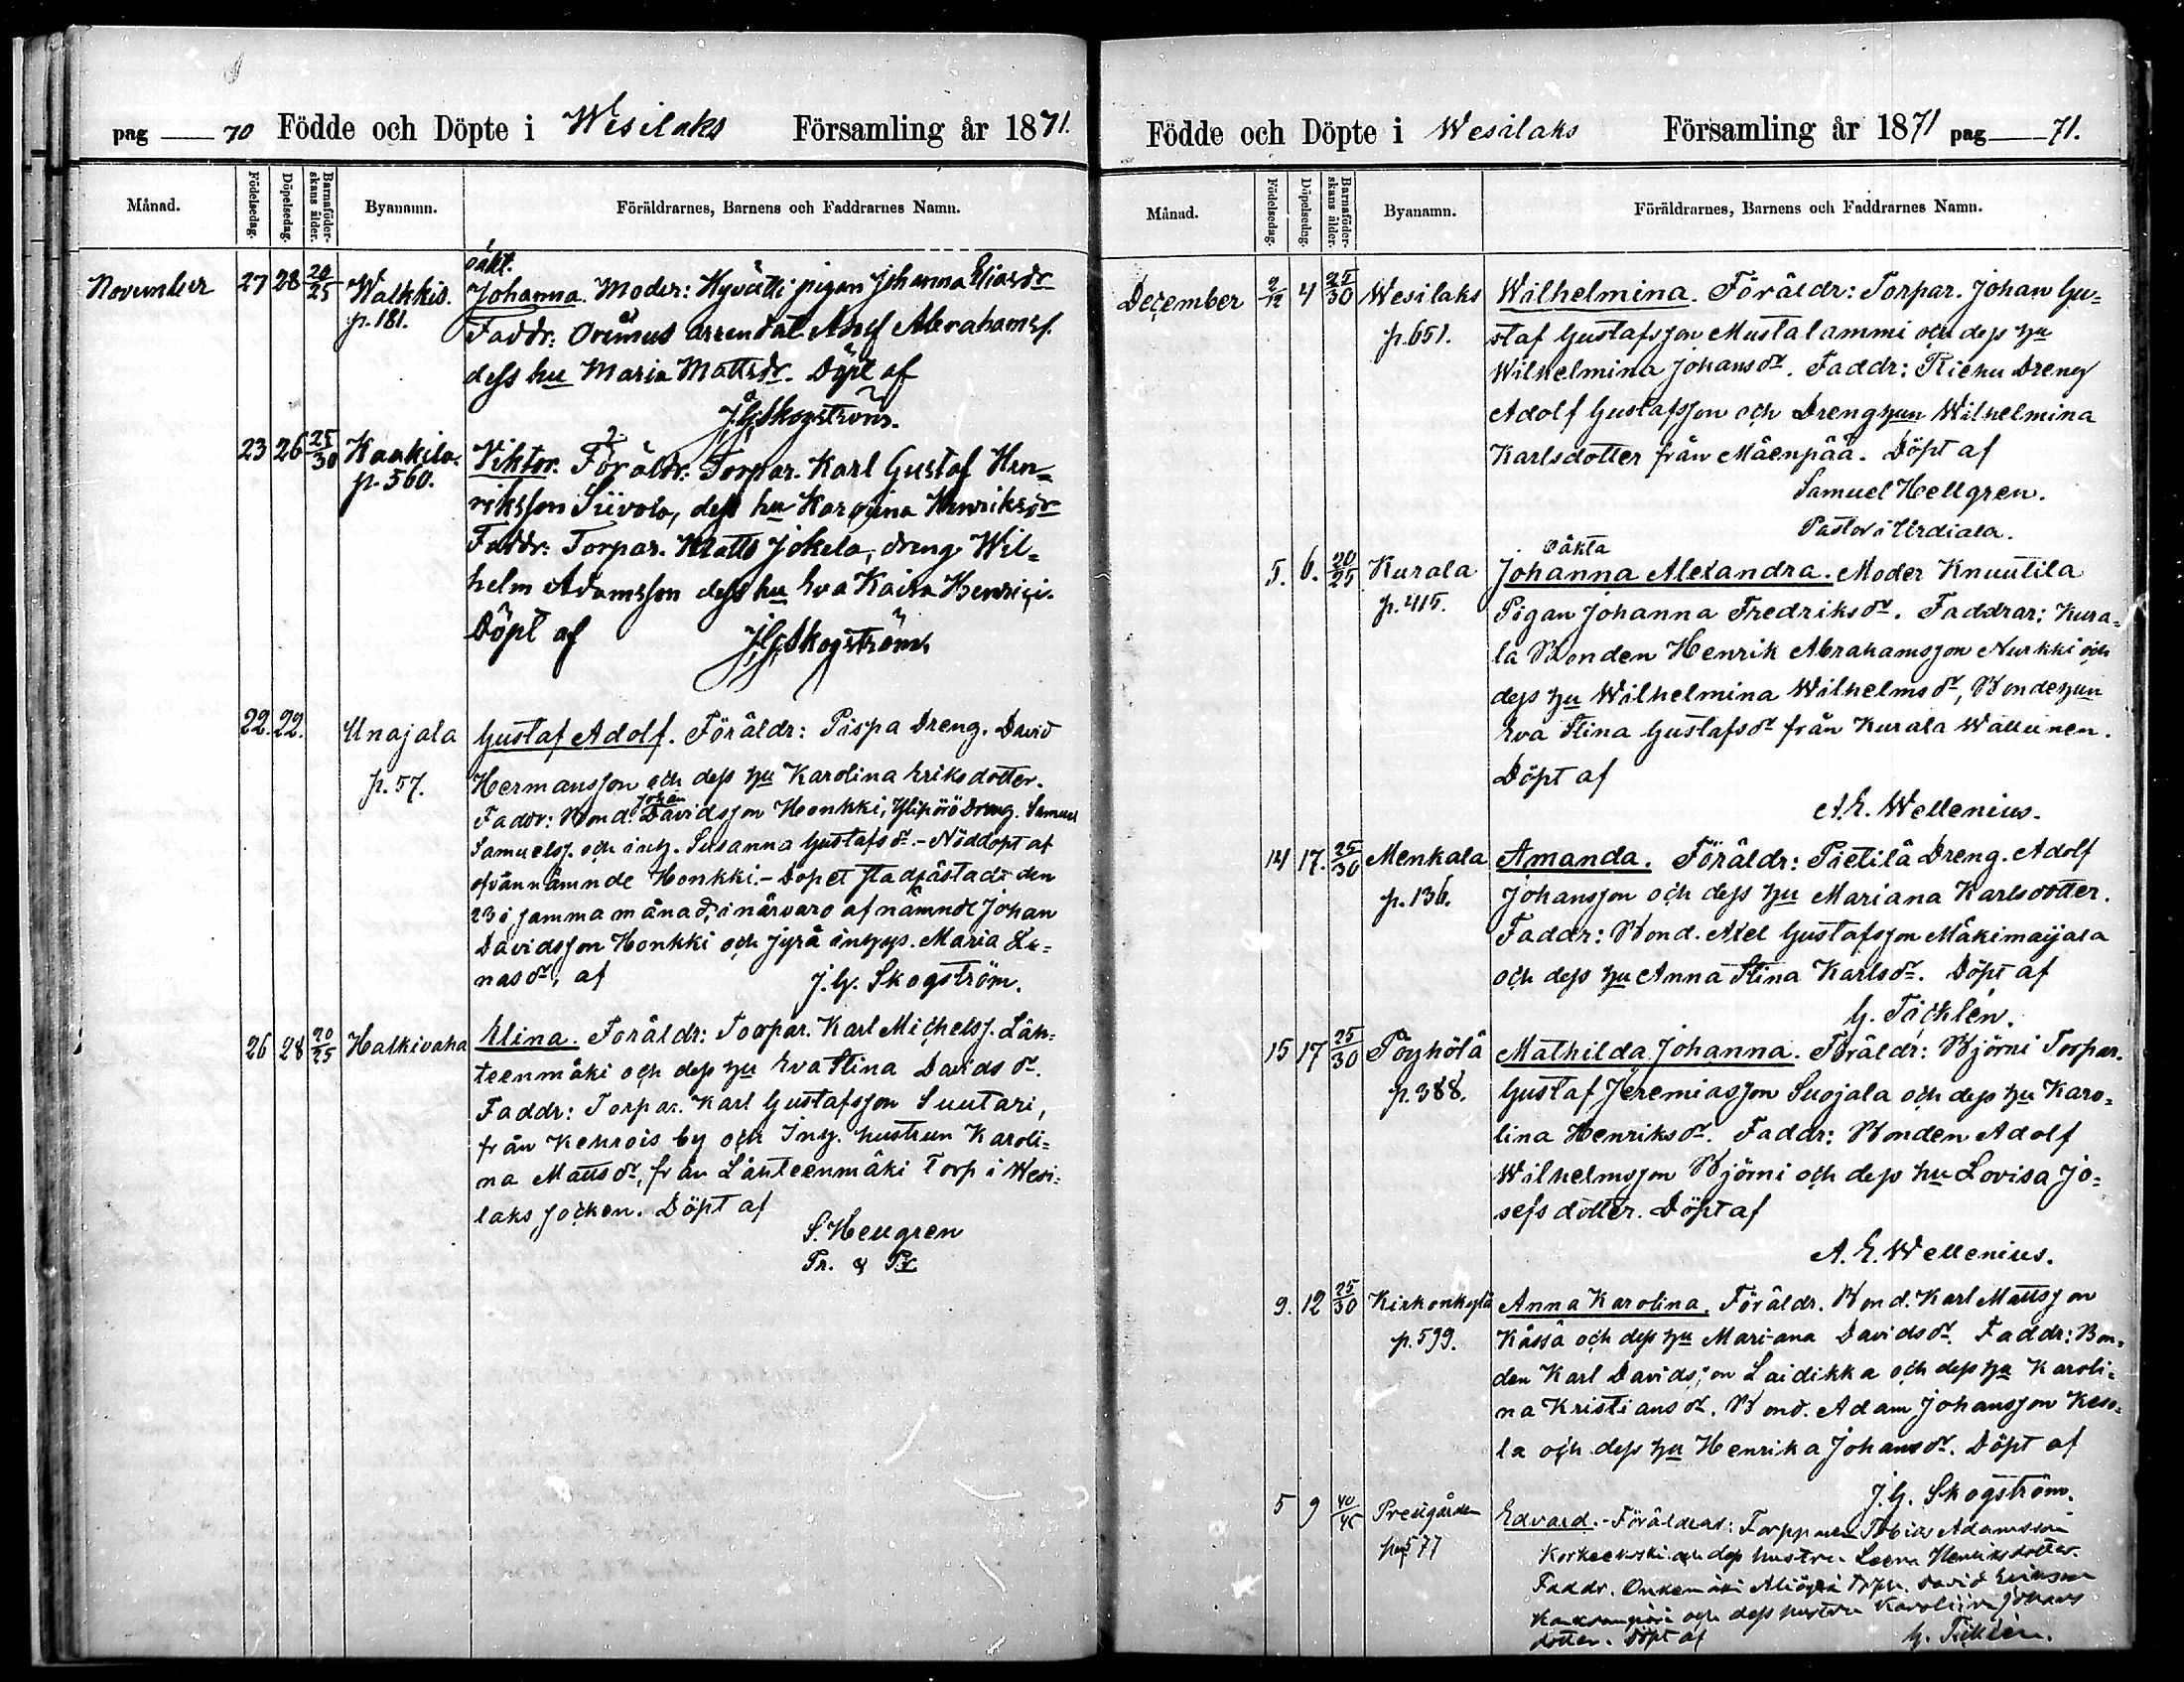 pag 70 Födde och Döpte i Wesilaks Församling år 1871.
Månad. Födelsedag. Döpelsedag. Barnaföderskans ålder. Byanamn. Föräldrarnes, Barnens och Faddrarnes Namn.
oäkt.
November 27 28 20/25 Walkkis. Johanna. Moder: Hyvätti pigan Johanna Eliasdr
p. 181. Faddr: Orimus arrendat. Abrahamsf.
dess hu Maria Mattsdr. Döpt af
J.G. Skogström.
23 26 25/30 Kaakila. Viktor. Föräldr: Torpar. Karl Gustaf Hen=
p. 560. riksson Siivola, dess hu Karolina Henriksdr
Faddr: Torpar. Matts Jokela, dreng Wil=
helm Adamsson dess hu Eva Kaisa Henrici.
Döpt af J.G. Skogström
22. 22. Unajala Gustaf Adolf. Föräldr: Pispa Dreng. David
p. 57. Hermansson och dess hu Karolina Eriksdotter.
Johan
Faddr: Bond. Davidsson Honkki, Ylipörö Dreng. Samuel
Samuelss. och inh. Susanna Gustafsdr. - Nöddöpt af
ofvannämnde Honkki. - Dopet stadfästadt den
23 i samma månad, i närvaro af nämnde Johan
Davidsson Honkki och Jyrä inhys. Maria Lu=
nasdr, af J.G. Skogström.
26 28 20/25 Halkivaha Elina. Föräldr: Torpar. Karl Michelss. Läh=
teenmäki och dess hu Eva Stina Davidsdr.
Faddr: Torpar. Karl Gustafsson Suutari,
från Kehrois by och Inh. hustrun Karoli=
na Mattsdr, från Lähteenmäki Torp i Wesi=
laks socken. Döpt af
S. Hellgren
Pr. & Pr
Födde och Döpte i Wesilaks Församling år 1871 pag 71.
Månad. Födelsedag. Döpelsedag. Barnaföderskans ålder. Byanamn. Föräldrarnes, Barnens och Faddrarnes Namn.
December 2/12 4 25/30 Wesilaks Wilhelmina. Föräldr: Torpar. Johan Gu=
p. 651. staf Gustafsson Mustalammi och dess hu
Wilhelmina Johansdr. Faddr: Riehu Dreng
Adolf Gustafsson och Dreng hun Wilhelmina
Karlsdotter från Mäenpää. Döpt af
Samuel Hellgren.
Pastor i Urdiala.
oäkta
5. 6. 20/25 Kurala Johanna Alexandra. Moder Knuutila
p. 415. Pigan Johanna Fredriksdr. Faddrar: Kura=
la Bonden Henrik Abrahamsson Nurkki och
dess hu Wilhelmina Wilhelmsdr, Bondehun
Eva Stina Gustafsdr från Kurala Wallunen.
Döpt af
A. E. Wellenius.
14 17. 25/30 Menkala Amanda. Föräldr: Pietilä Dreng. Adolf
p. 136. Johansson och dess hu Mariana Karlsdotter.
Faddr: Bond. Axel Gustafsson Mäkimaijala
och dess hu Anna Stina Karlsdr. Döpt af
G. Täcklén.
15 17 25/30 Pöyhölä Mathilda Johanna. Föräldr: Björni Torpar.
p. 388. Gustaf Jeremiasson Suojala och dess hu Karo=
lina Henriksdr. Faddr: Bonden Adolf
Wilhelmsson Björni och dess hu Lovisa Jo=
sefsdotter. Döpt af
A. E. Wellenius.
9. 12 25/30 Kirkonkylä Anna Karolina. Föräldr. Bond. Karl Mattsson
p. 599. Kässä och dess hu Mariana Davidsdr. Faddr: Bon=
den Karl Davidsson Laidikka och dess hu Karoli=
na Kristiansdr. Bond. Adam Johansson Keso=
la och dess hu Henrika Johansdr. Döpt af
J.G. Skogström.
5 9 40/45 Prestgården Edvard. - Föräldrar: Torpparen Tobias Adamsson
pag 577 och dess hustru Leena Henriksdotter.
Faddr. Onkemäki David Eriksson
och dess hustru Karolina Johans
dotter. Döpt af G. Täcklén.